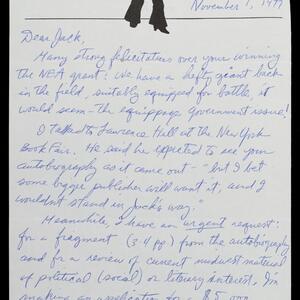 November 1, 1977
Dear Jack,
Many strong felicitations over your winning
the NEA grant: We have a hefty giant back
in the field, suitably equipped for battle, it
would seem - the equippage government issue!
I talked to Lawrence Hall at the New York
Book Fair. He said he expected to see your
autobiography as it came out - "but I bet
some bigger publisher will want it, and I
wouldn't stand in Jack's way."
Meanwhile, I have an urgent request:
for a fragment (3-4 pp) from the autobiography
and for a review of current midwest material
of political (social) or literary interest. I'm
making an application for a $5,000